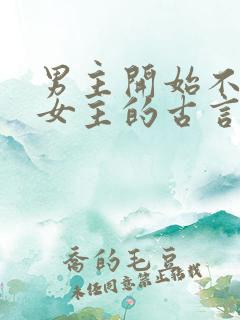 男主開始不
女主的古言
喬的毛豆
未經同意禁止轉載